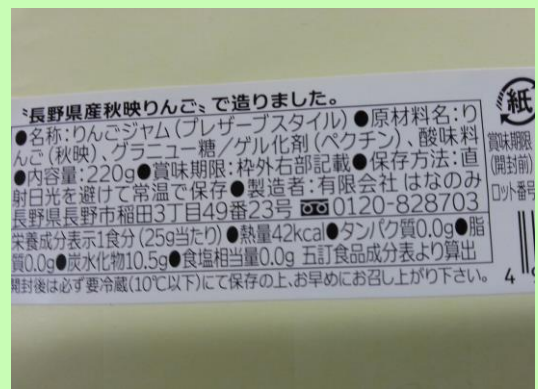 〝長野県産秋映りんご〟で造りました。
●名称:りんごジャム(プレザーブスタイル)●原材料名:り
んご(秋映)、グラニュー糖/ゲル化剤(ペクチン)、酸味料
●内容量:220g●賞味期限:枠外右部記載●保存方法:直
射日光を避けて常温で保存●製造者:有限会社 はなのみ
長野県長野市稲田3丁目49番23号 0120-828703
栄養成分表示1食分(25g当たり)●熱量42kcal●タンパク質0.0g●脂
質0.0g●炭水化物10.5g●食塩相当量0.0g 五訂食品成分表より算出
開封後は必ず要冷蔵(10℃以下)にて保存の上、お早めにお召し上がり下さい。
紙
賞味期限
(開封前)
ロット番号
4